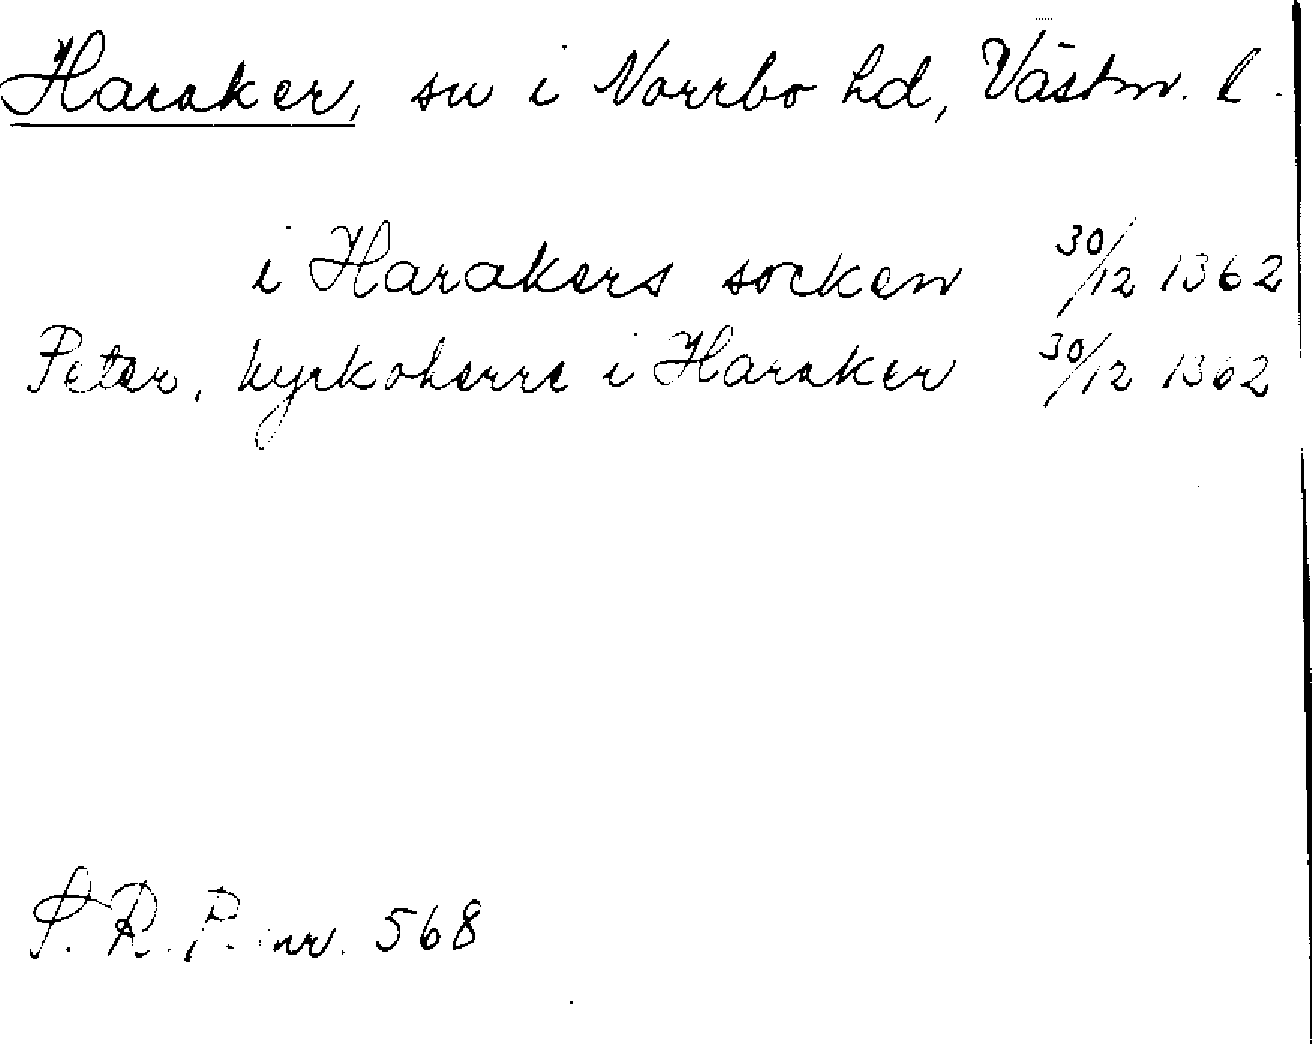 Haraker, sn i Norrbo hd, Västm. l.
i Harakers socken 30/12 1362
Peter, kyrkoherre i Haraker 30/12 1362
S. R. P. nr. 568